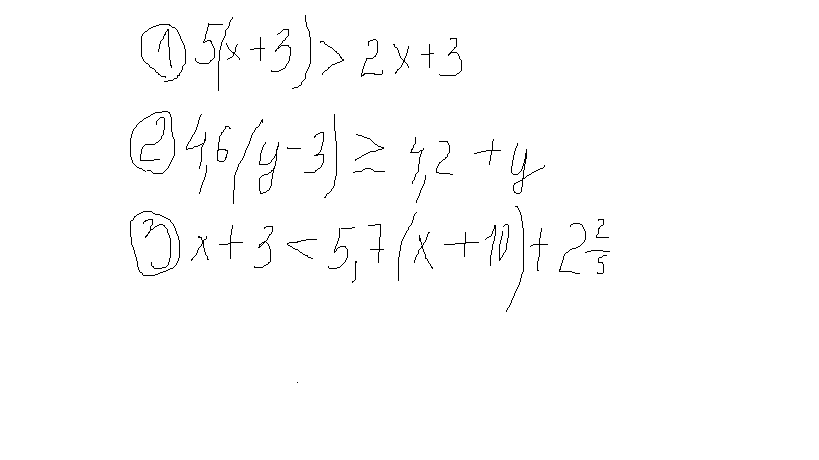 ① 5(x+3) > 2x+3
② 4,6(y-3) ≥ 4,2 + y
③ x+3 < 5,7(x+10)+2 2/5